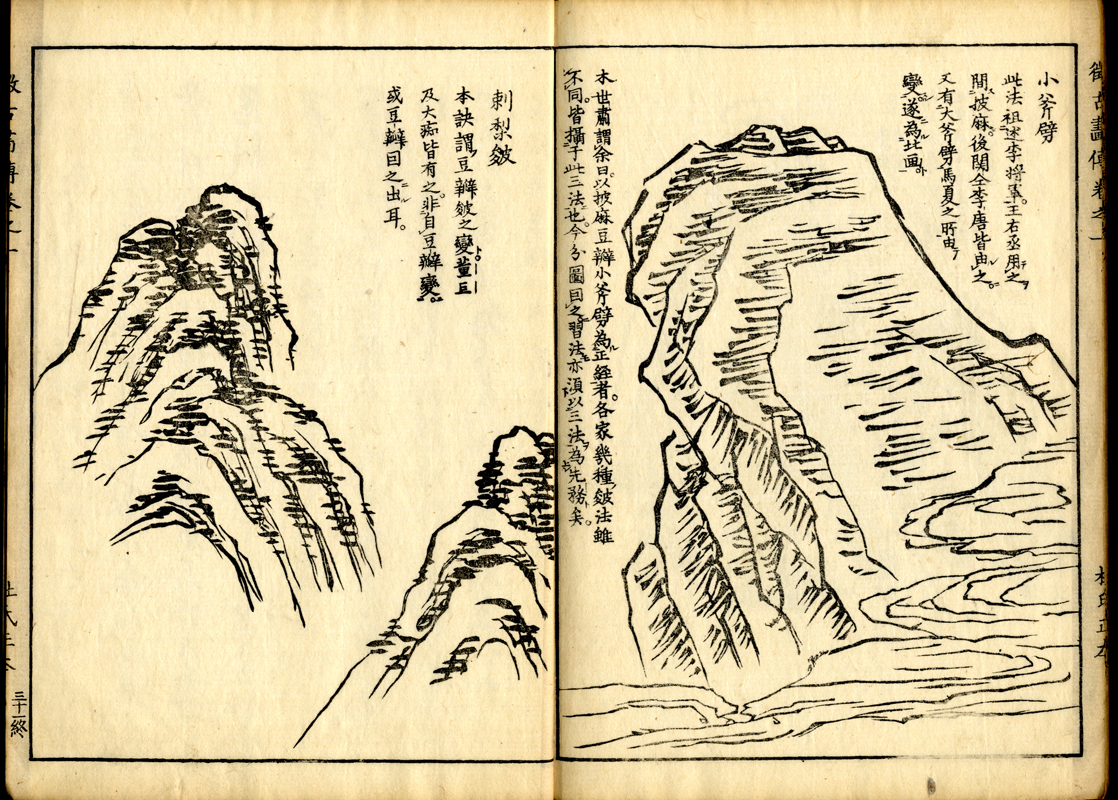 小斧劈
此法祖述李將軍王右丞用之
間披麻後関仝李唐皆由之
又有大斧劈馬夏之所由
變遂為北画
本世肅謂余曰以披麻豆瓣小斧劈為正經者各家幾種皴法雖
不同皆攝于此三法也今分圖目之習法亦須以三法為先務矣
刺梨皴
本訣謂豆瓣皴之變董巨
及大痴皆有之非自豆瓣變
或豆瓣目之出耳
三十一終